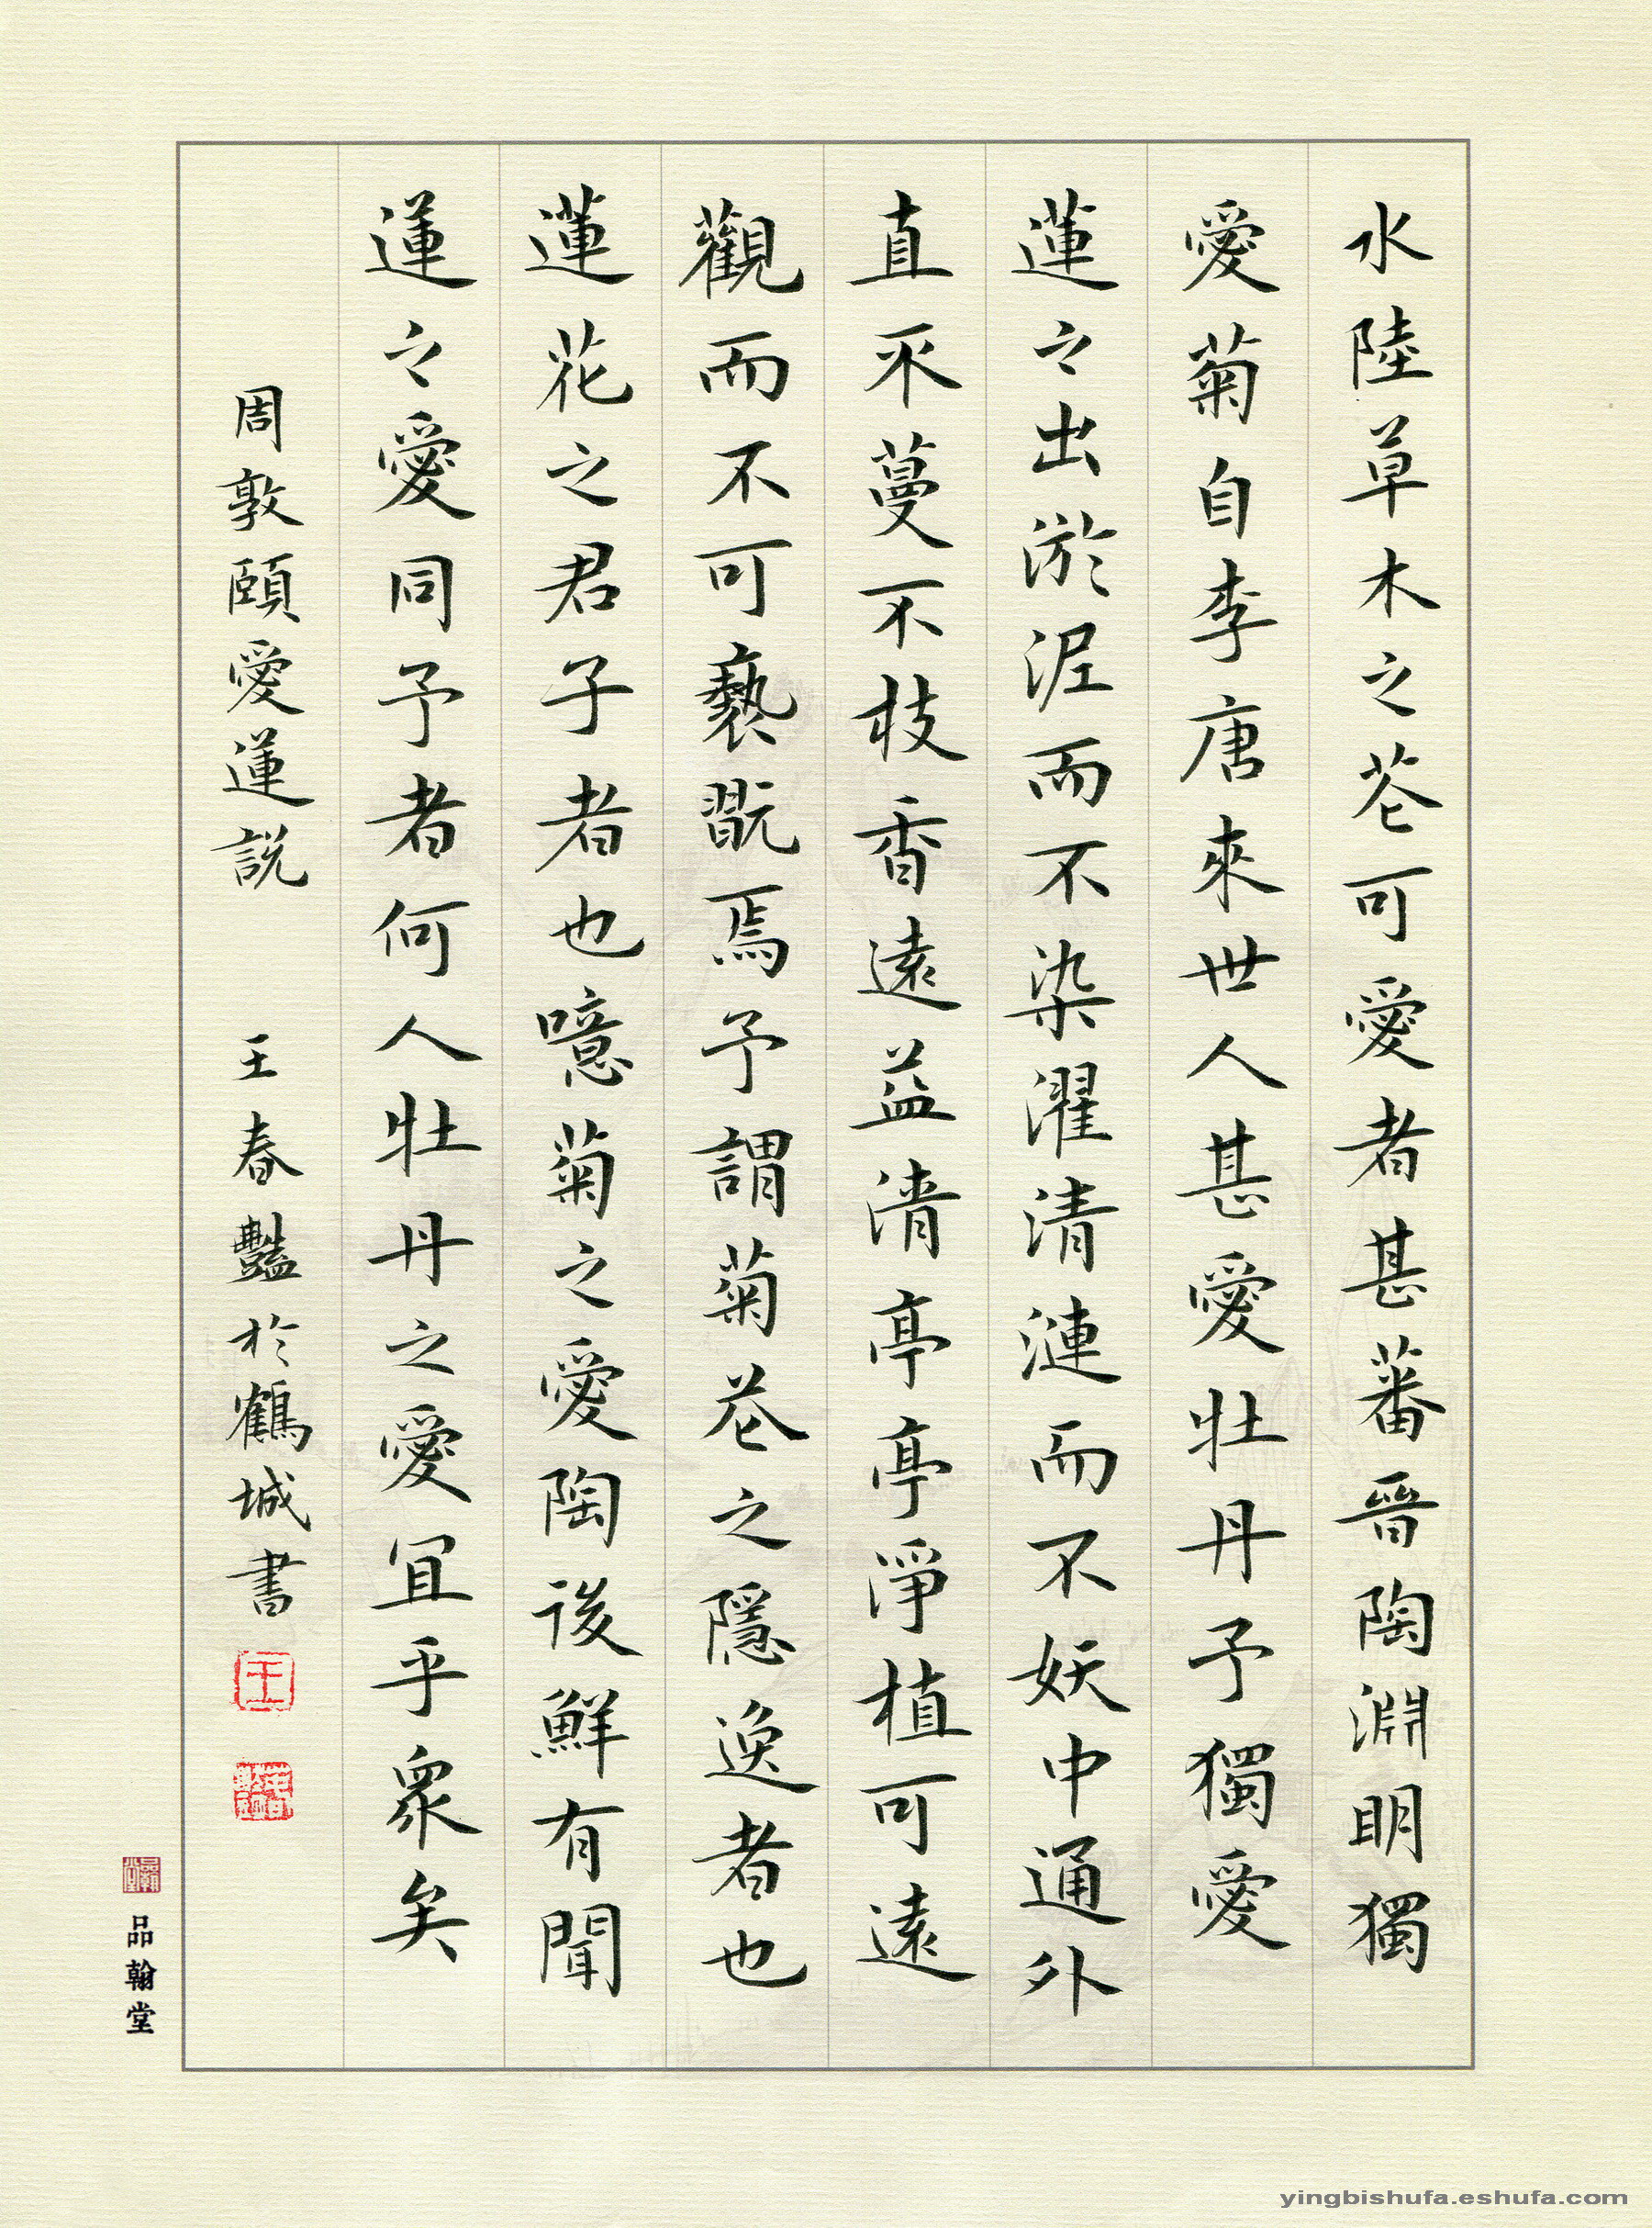 水陸草木之花可愛者甚蕃晉陶淵明獨
愛菊自李唐來世人甚愛牡丹予獨愛
蓮之出淤泥而不染濯清漣而不妖中通外
直不蔓不枝香遠益清亭亭淨植可遠
觀而不可褻翫焉予謂菊花之隱逸者也
蓮花之君子者也噫菊之愛陶後鮮有聞
蓮之愛同予者何人牡丹之愛宜乎眾矣
周敦頤愛蓮說 王春豔於鶴城書
王
品翰堂
yingbishufa.eshufa.com